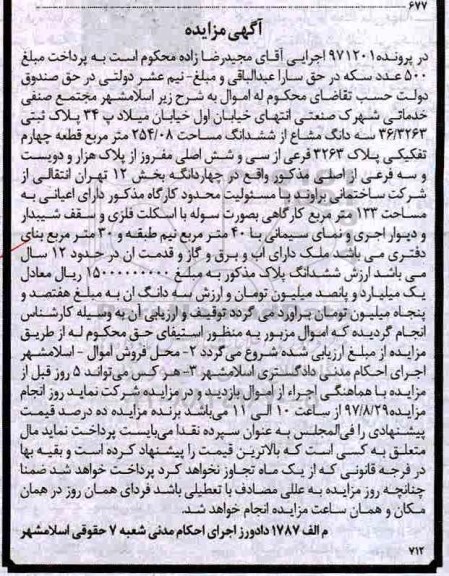 ۶۷۷
آگهی مزایده
در پرونده ۹۷۱۲۰۱ اجرایی آقای مجیدرضا زاده محکوم است به پرداخت مبلغ
۵۰۰ عدد سکه در حق سارا عبدالباقی و مبلغ- نیم عشر دولتی در حق صندوق
دولت حسب تقاضای محکوم له اموال به شرح زیر اسلامشهر مجتمع صنفی
خدماتی شهرک صنعتی انتهای خیابان اول خیابان میلاد پ ۳۴ پلاک ثبتی
۳۶/۳۲۶۳ سه دانگ مشاع از ششدانگ مساحت ۲۵۴/۰۸ متر مربع قطعه چهارم
تفکیکی پلاک ۳۲۶۳ فرعی از سی و شش اصلی مفروز از پلاک هزار و دویست
و سه فرعی از اصلی مذکور واقع در چهاردانگه بخش ۱۲ تهران انتقالی از
شرکت ساختمانی براوند با مسئولیت محدود کارگاه مذکور دارای اعیانی به
مساحت ۱۳۳ متر مربع کارگاهی بصورت سوله با اسکلت فلزی و سقف شیبدار
و دیوار اجری و نمای سیمانی با ۴۰ متر مربع نیم طبقه و ۳۰ متر مربع بنای
دفتری می باشد ملک دارای اب و برق و گاز و قدمت ان در حدود ۱۲ سال
می باشد ارزش ششدانگ پلاک مذکور به مبلغ ۱۵۰۰۰۰۰۰۰۰۰ ریال معادل
یک میلیارد و پانصد میلیون تومان و ارزش سه دانگ ان به مبلغ هفتصد و
پنجاه میلیون تومان براورد می گردد توقیف و ارزیابی آن به وسیله کارشناس
انجام گردیده که اموال مزبور به منظور استیفای حق محکوم له از طریق
مزایده از مبلغ ارزیابی شده شروع می‌گردد ۲- محل فروش اموال - اسلامشهر
اجرای احکام مدنی دادگستری اسلامشهر ۳- هر کس می‌تواند ۵ روز قبل از
مزایده با هماهنگی اجراء از اموال بازدید و در مزایده شرکت نماید روز انجام
مزایده۹۷/۸/۲۹ از ساعت ۱۰ الی ۱۱ می‌باشد برنده مزایده ده درصد قیمت
پیشنهادی را فی‌المجلس به عنوان سپرده نقدا می‌بایست پرداخت نماید مال
متعلق به کسی است که بالاترین قیمت را پیشنهاد کرده است و بقیه بها
در فرجه قانونی که از یک ماه تجاوز نخواهد کرد پرداخت خواهد شد ضمنا
چنانچه روز مزایده به عللی مصادف با تعطیلی باشد فردای همان روز در همان
مکان و همان ساعت مزایده انجام خواهد شد.
م الف ۱۷۸۷ دادورز اجرای احکام مدنی شعبه ۷ حقوقی اسلامشهر
۷۱۲